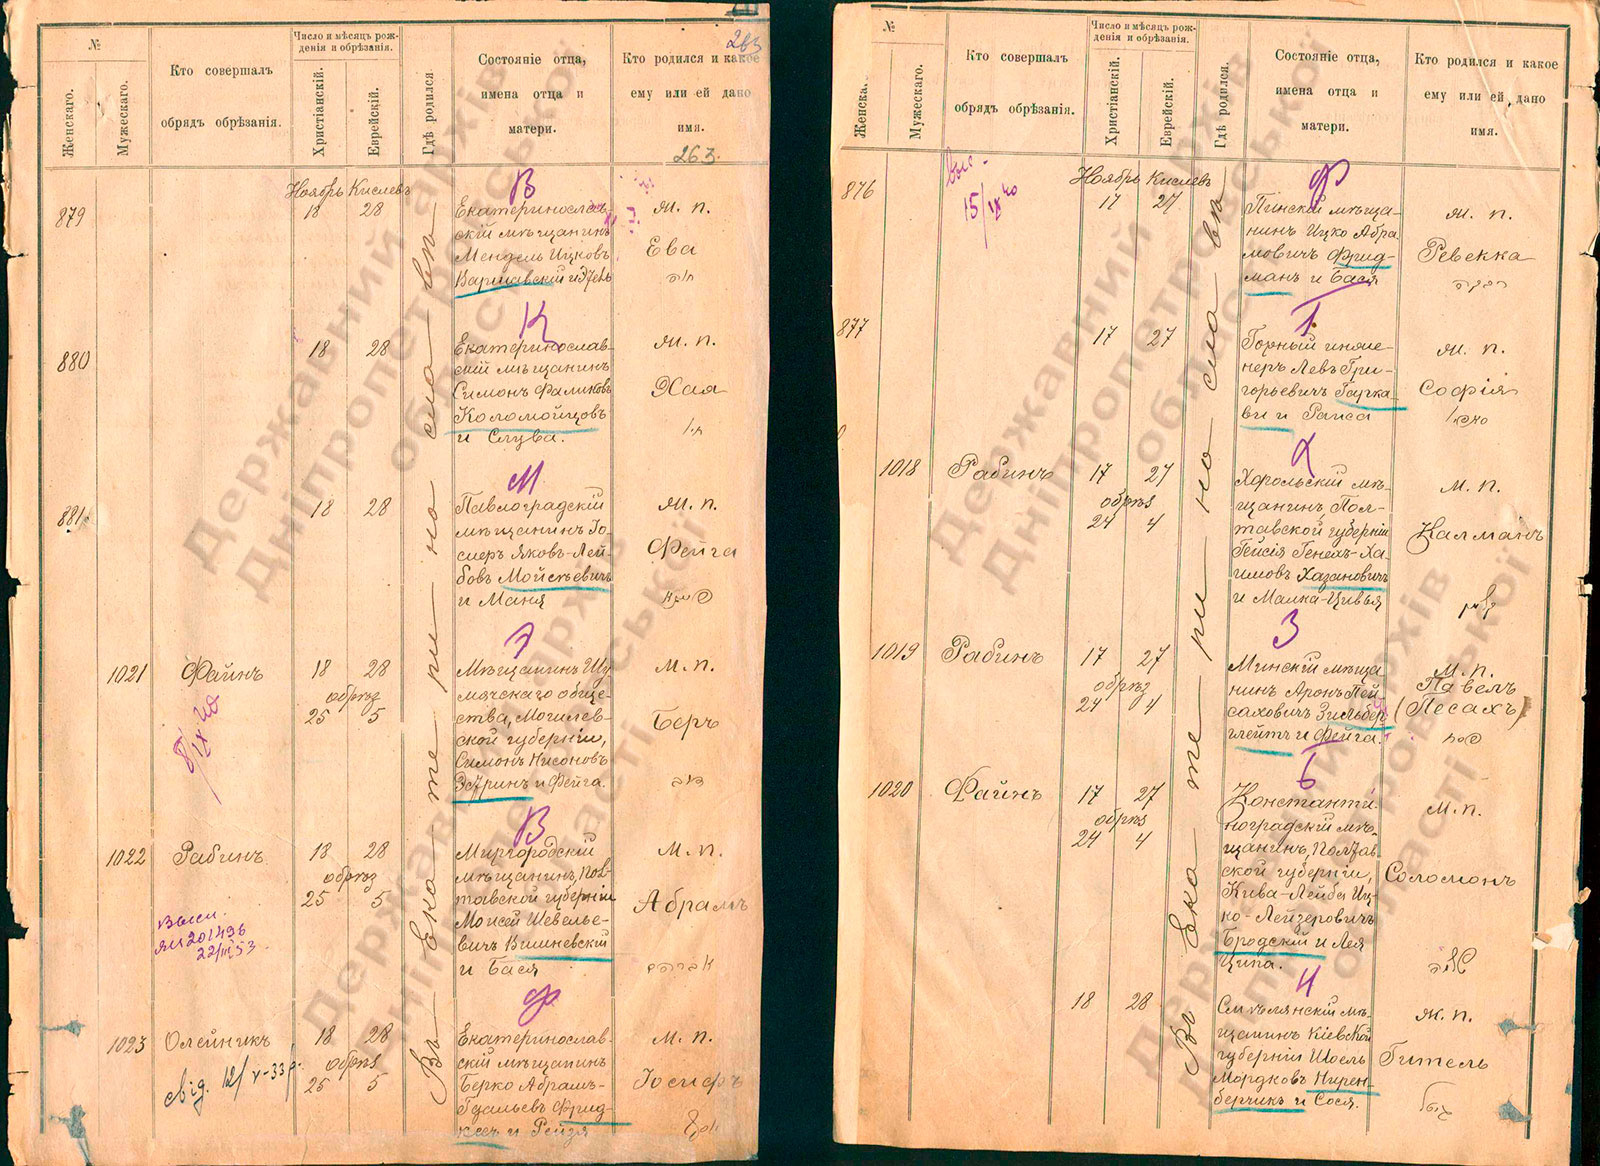 263
№
Женскаго.
Мужескаго.
Кто совершалъ
обрядъ обрѣзанія.
Число и мѣсяцъ рож-
денія и обрѣзанія.
Христіанскій.
Еврейскій.
Гдѣ родился
Состояніе отца,
имена отца и
матери.
Кто родился и какое
ему или ей дано
имя.
263.
Ноябрь Кислевъ
въ Екатеринославѣ
879
18 28
В
Екатеринослав-
скій мѣщанинъ
Мендель Ицковъ
Варшавскій и
ж. п.
Ева
880
18 28
К
Екатеринослав-
скій мѣщанинъ
Симонъ Фаликовъ
Коломойцовъ
и Слува.
ж. п.
Хая
881
18 28
М
Павлоградскій
мѣщанинъ Іо-
сперъ Яковъ-Лей-
бовъ Мойсѣевичъ
и Маня
ж. п.
Фейга
1021
Файнъ
8/IX 40
18 28
обрѣз
25 5
Э
Мѣщанинъ Шу-
мячскаго обще-
ства, Могилев-
ской губерніи,
Симонъ Нисоновъ
Эстринъ и Фейга.
м. п.
Беръ
1022
Рабинъ
18 28
обрѣз
25 5
В
Миргородскій
мѣщанинъ, Пол-
тавской губерніи
Моисей Шевелье-
вичъ Вишневскій
и Бася
м. п.
Абрамъ
אברהם
22/III 53
1023
Олейникъ
свід. 12/V-33 р.
18 28
обрѣз
25 5
Ф
Екатеринослав-
скій мѣщанинъ
Берко Абрамъ-
Гдальевъ Фрид-
кесъ и Рейзя
м. п.
Іосифъ
יוסף
№
Женска.
Мужескаго.
Кто совершалъ
обрядъ обрѣзанія.
Число и мѣсяцъ рож-
денія и обрѣзанія.
Христіанскій.
Еврейскій.
Гдѣ родился.
Состояніе отца,
имена отца и
матери.
Кто родился и какое
ему или ей дано
имя.
Ноябрь Кислевъ
Въ Екатеринославѣ
876
15/IX 40
17 27
Ф
Пинскій мѣща-
нинъ Ицко Абра-
мовичъ Фрид-
манъ и Бася
ж. п.
Ревекка
רבקה
877
17 27
Г
Горный инже-
неръ Левъ Гри-
горьевичъ Гарка-
ви и Раиса
ж. п.
Софія
1018
Рабинъ
17 27
обрѣз
24 4
Х
Хорольскій мѣ-
щанинъ, Пол-
тавской губерніи
Гейсія Генехъ-Ха-
имовъ Хазановичъ
и Малка-Цивья
м. п.
Калманъ
1019
Рабинъ
17 27
обрѣз
24 4
З
Минскій мѣща-
нинъ Аронъ Пей-
саховичъ Зильбер-
глейтъ и Фейга.
м. п.
Павелъ
(Песахъ)
פסח
1020
Файнъ
17 27
обрѣз
24 4
Б
Константи-
ноградскій мѣ-
щанинъ, Полтав-
ской губерніи,
Кива-Лейба Иц-
ко-Лейзеровичъ
Бродскій и Лея
Ципа.
м. п.
Соломонъ
שלמה
18 28
Н
Смѣлянскій мѣ-
щанинъ Кіевской
губерніи Шоель
Мордковъ Нирен-
берчикъ и Сося.
ж. п.
Гитель
Державний архів
Дніпропетровської
області